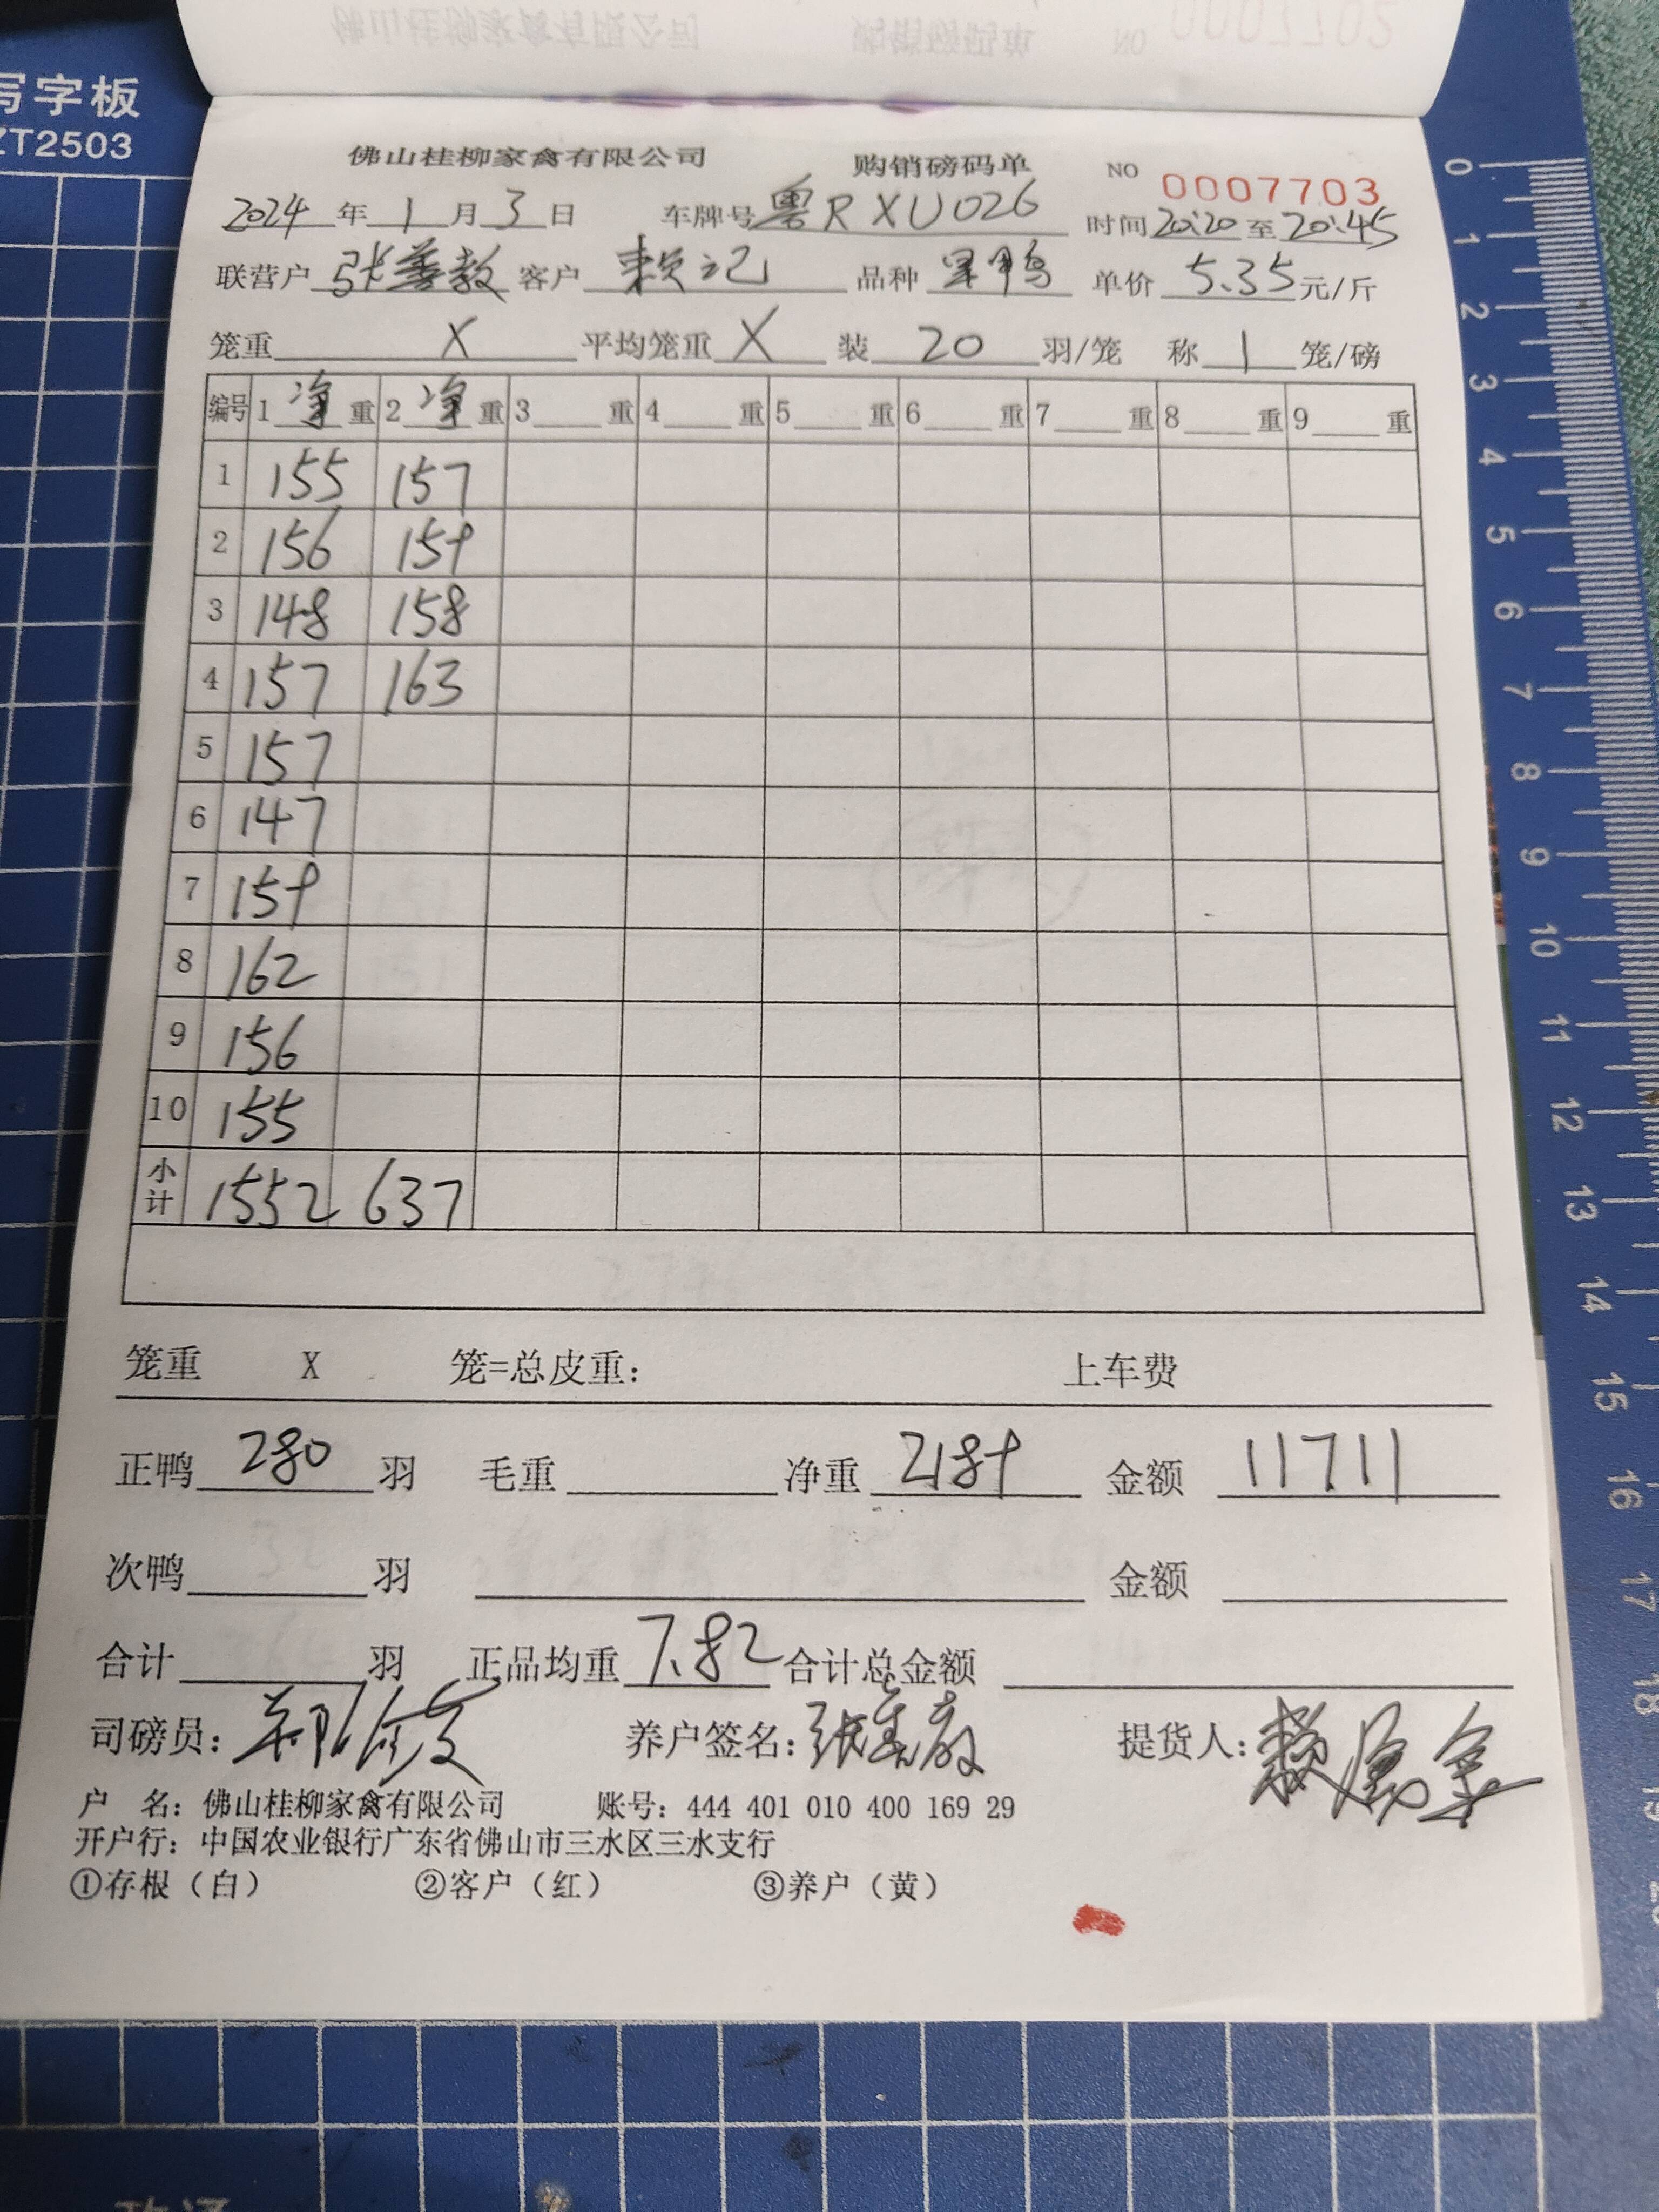 写字板
ZT2503
佛山桂柳家禽有限公司 购销磅码单 NO 0007703
2024年1月3日 车牌号粤RXU026 时间20:20至20:45
联营户张善教 客户赖记 品种黑鸭 单价5.35元/斤
笼重X 平均笼重X 装20羽/笼 称1笼/磅
编号 1净重 2净重 3重 4重 5重 6重 7重 8重 9重
1 155 157
2 156 159
3 148 158
4 157 163
5 157
6 147
7 159
8 162
9 156
10 155
小计 1552 637
笼重 X 笼=总皮重： 上车费
正鸭280羽 毛重 净重2189 金额11711
次鸭 羽 金额
合计 羽 正品均重7.82 合计总金额
司磅员： 养户签名：张善教 提货人：
户 名：佛山桂柳家禽有限公司 账号：444 401 010 400 169 29
开户行：中国农业银行广东省佛山市三水区三水支行
①存根（白） ②客户（红） ③养户（黄）
0 1 2 3 4 5 6 7 8 9 10 11 12 13 14 15 16 17 18 19